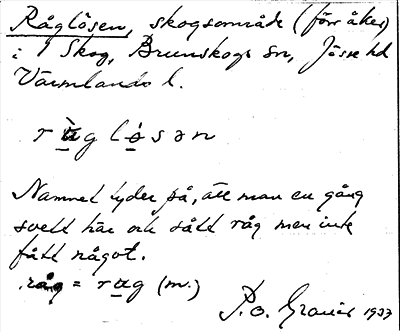 Råglösen, skogsområde (förr åker)
i Skog, Brunskogs sn, Jösse hd
Värmlands l.
r u̲ g l ö̲ s ə n
Namnet tyder på, att man en gång
svett här och sått råg men inte
fått något.
råg = r u̲ g (m.)
P.O. 1933